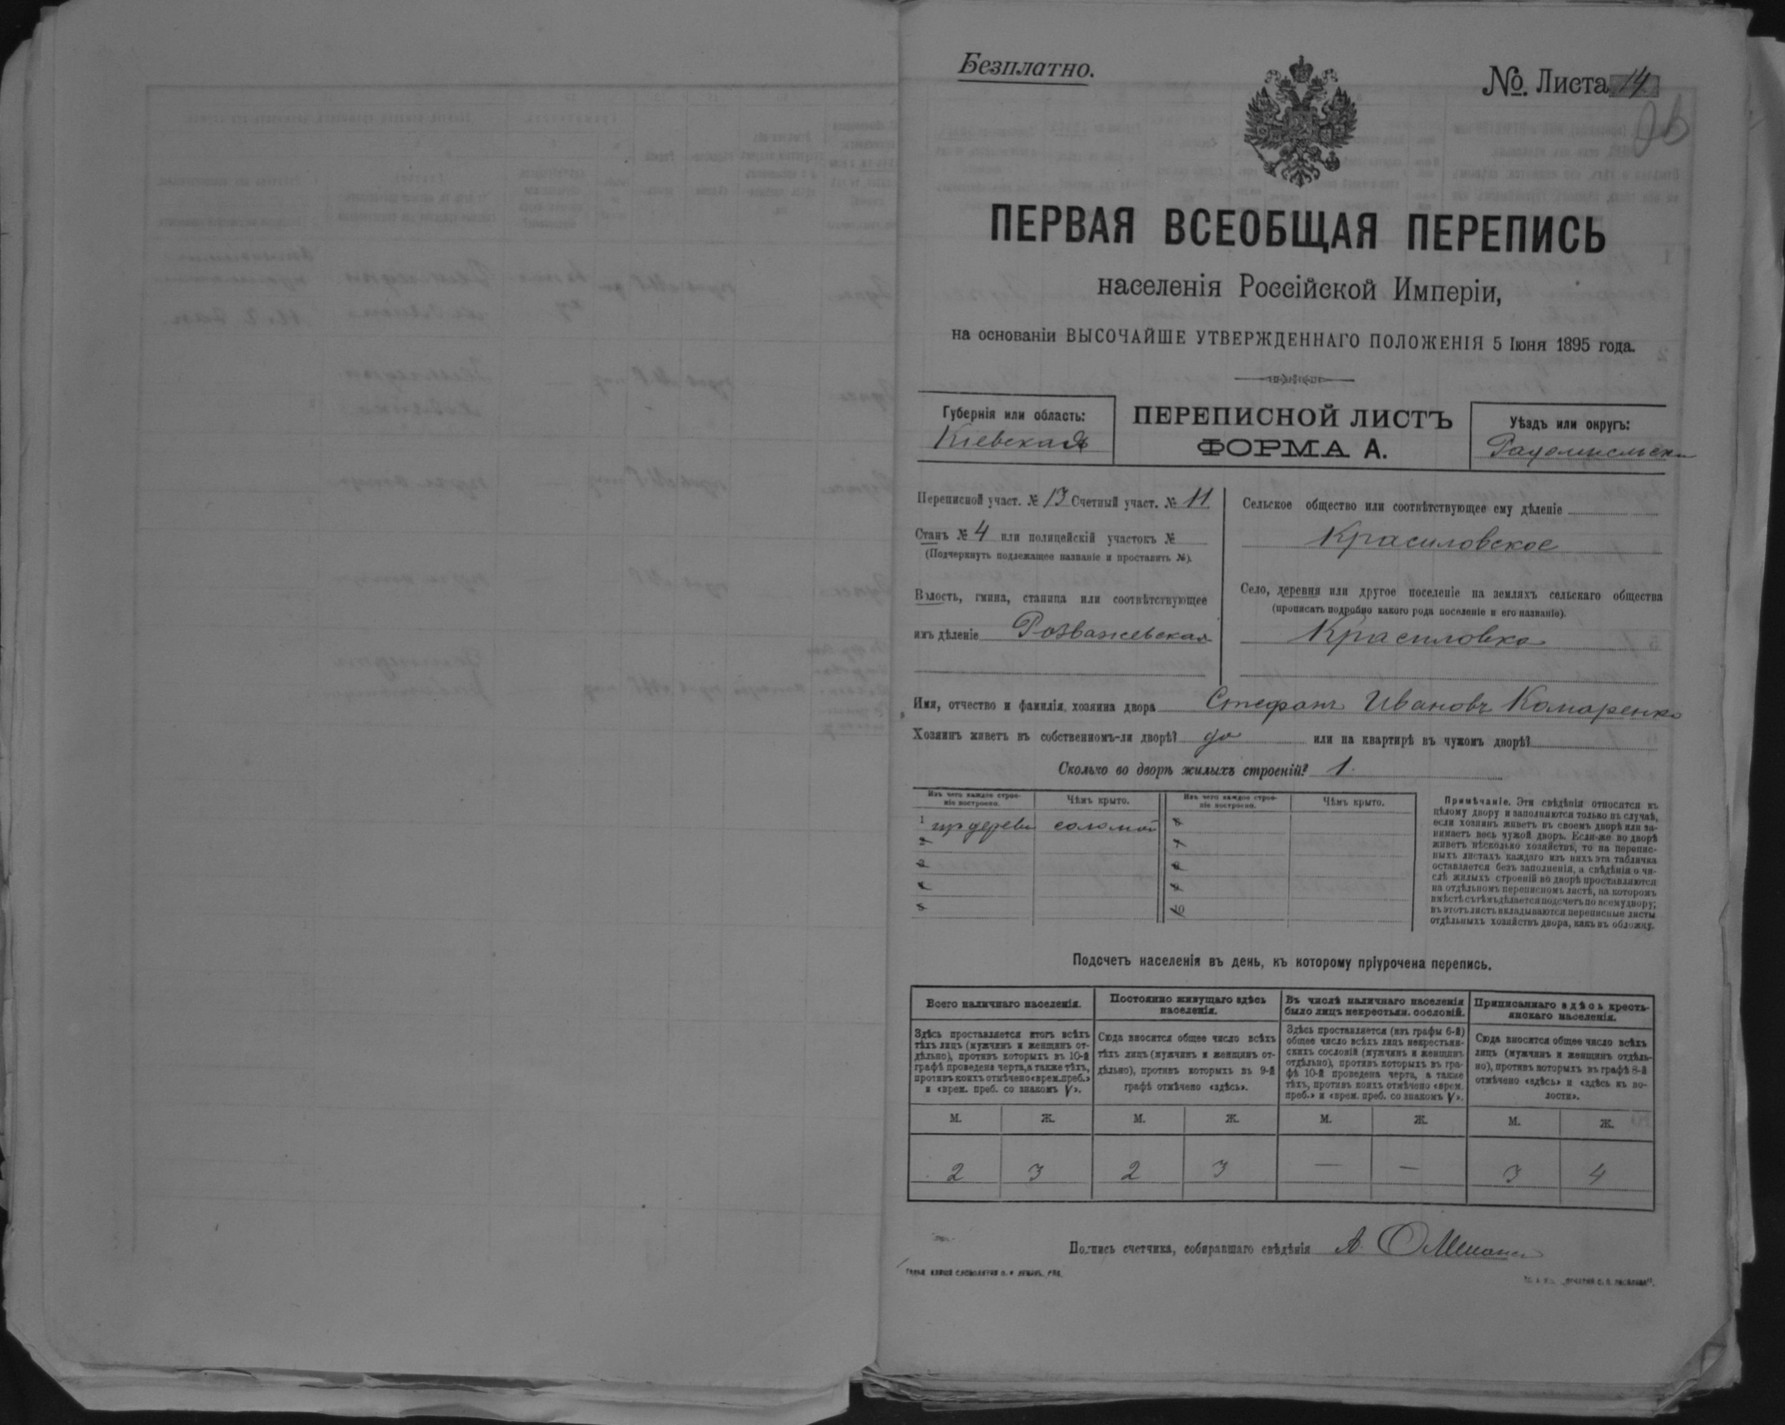 Безплатно.
№. Листа 14
ПЕРВАЯ ВСЕОБЩАЯ ПЕРЕПИСЬ
населенія Россійской Имперіи,
на основаніи ВЫСОЧАЙШЕ УТВЕРЖДЕННАГО ПОЛОЖЕНІЯ 5 Іюня 1895 года.
Губернія или область:
Кіевская
ПЕРЕПИСНОЙ ЛИСТЪ
ФОРМА А.
Уѣздъ или округъ:
Переписной участ. № 13 Счетный участ. № 11
Станъ № 4 или полицейскій участокъ №
(Подчеркнуть подлежащее названіе и проставить №).
Волость, гмина, станица или соотвѣтствующее
имъ дѣленіе Розважевская
Сельское общество или соотвѣтствующее ему дѣленіе
Красиловское
Село, деревня или другое поселеніе на земляхъ сельскаго общества
(прописать подробно какого рода поселеніе и его названіе).
Красиловка
Имя, отчество и фамилія хозяина двора Стефанъ Ивановъ Комаренко
Хозяинъ живетъ въ собственномъ-ли дворѣ? да или на квартирѣ въ чужомъ дворѣ?
Сколько во дворѣ жилыхъ строеній? 1.
Изъ чего каждое строе-
ніе построено.
Чѣмъ крыто.
Изъ чего каждое строе-
ніе построено.
Чѣмъ крыто.
1 изъ дерева соломой
2
3
4
5
10
Примѣчаніе. Эти свѣдѣнія относятся къ
цѣлому двору и заполняются только въ случаѣ,
если хозяинъ живетъ въ своемъ дворѣ или за-
нимаетъ весь чужой дворъ. Если-же во дворѣ
живетъ нѣсколько хозяйствъ, то на перепис-
ныхъ листахъ каждаго изъ нихъ эта табличка
оставляется безъ заполненія, а свѣдѣнія о чи-
слѣ жилыхъ строеній во дворѣ проставляются
на отдѣльномъ переписномъ листѣ, на которомъ
вмѣстѣ съ тѣмъ дѣлается подсчетъ по всему двору;
въ этотъ листъ вкладываются переписные листы
отдѣльныхъ хозяйствъ двора, какъ въ обложку.
Подсчетъ населенія въ день, къ которому пріурочена перепись.
Всего наличнаго населенія.
Здѣсь проставляется итогъ всѣхъ
тѣхъ лицъ (мужчинъ и женщинъ от-
дѣльно), противъ которыхъ въ 10-й
графѣ проведена черта, а также тѣхъ,
противъ коихъ отмѣчено «врем. преб.»
и «врем. преб. со знакомъ V».
Постоянно живущаго здѣсь
населенія.
Сюда вносится общее число всѣхъ
тѣхъ лицъ (мужчинъ и женщинъ от-
дѣльно), противъ которыхъ въ 9-й
графѣ отмѣчено «здѣсь».
Въ числѣ наличнаго населенія
было лицъ некрестьян. сословій.
Здѣсь проставляется (изъ графы 6-й)
общее число всѣхъ лицъ некрестьян-
скихъ сословій (мужчинъ и женщинъ
отдѣльно), противъ которыхъ въ гра-
фѣ 10-й проведена черта, а также
тѣхъ, противъ коихъ отмѣчено «врем.
преб.» и «врем. преб. со знакомъ V».
Приписаннаго здѣсь кресть-
янскаго населенія.
Сюда вносится общее число всѣхъ
лицъ (мужчинъ и женщинъ отдѣль-
но), противъ которыхъ въ графѣ 8-й
отмѣчено «здѣсь» и «здѣсь въ во-
лости».
М. Ж. М. Ж. М. Ж. М. Ж.
2 3 2 3 — — 3 4
Подпись счетчика, собиравшаго свѣдѣнія А.